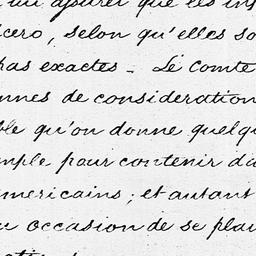 ajouter que les in
cero, selon qu'elles so
pas exactes _ Le Comte
nnes de consideration
ble qu'on donne quelqu
mple pour contenir d'a
mericains; et autant
u occasion de se plai